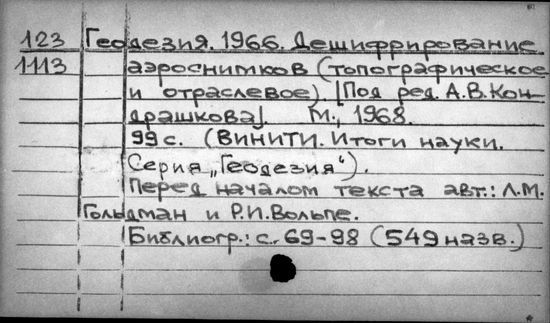 123 Геодезия. 1966. Дешифрирование
1113 аэроснимков (топографическое
и отраслевое). [Под ред. А.В.Кон-
драшкова]. М., 1968.
99 с. (ВИНИТИ. Итоги науки.
Серия „Геодезия“).
Перед началом текста авт.: Л.М.
Гольдман и Р.И.Вольпе.
Библиогр.: с. 69-98 (549 назв.)